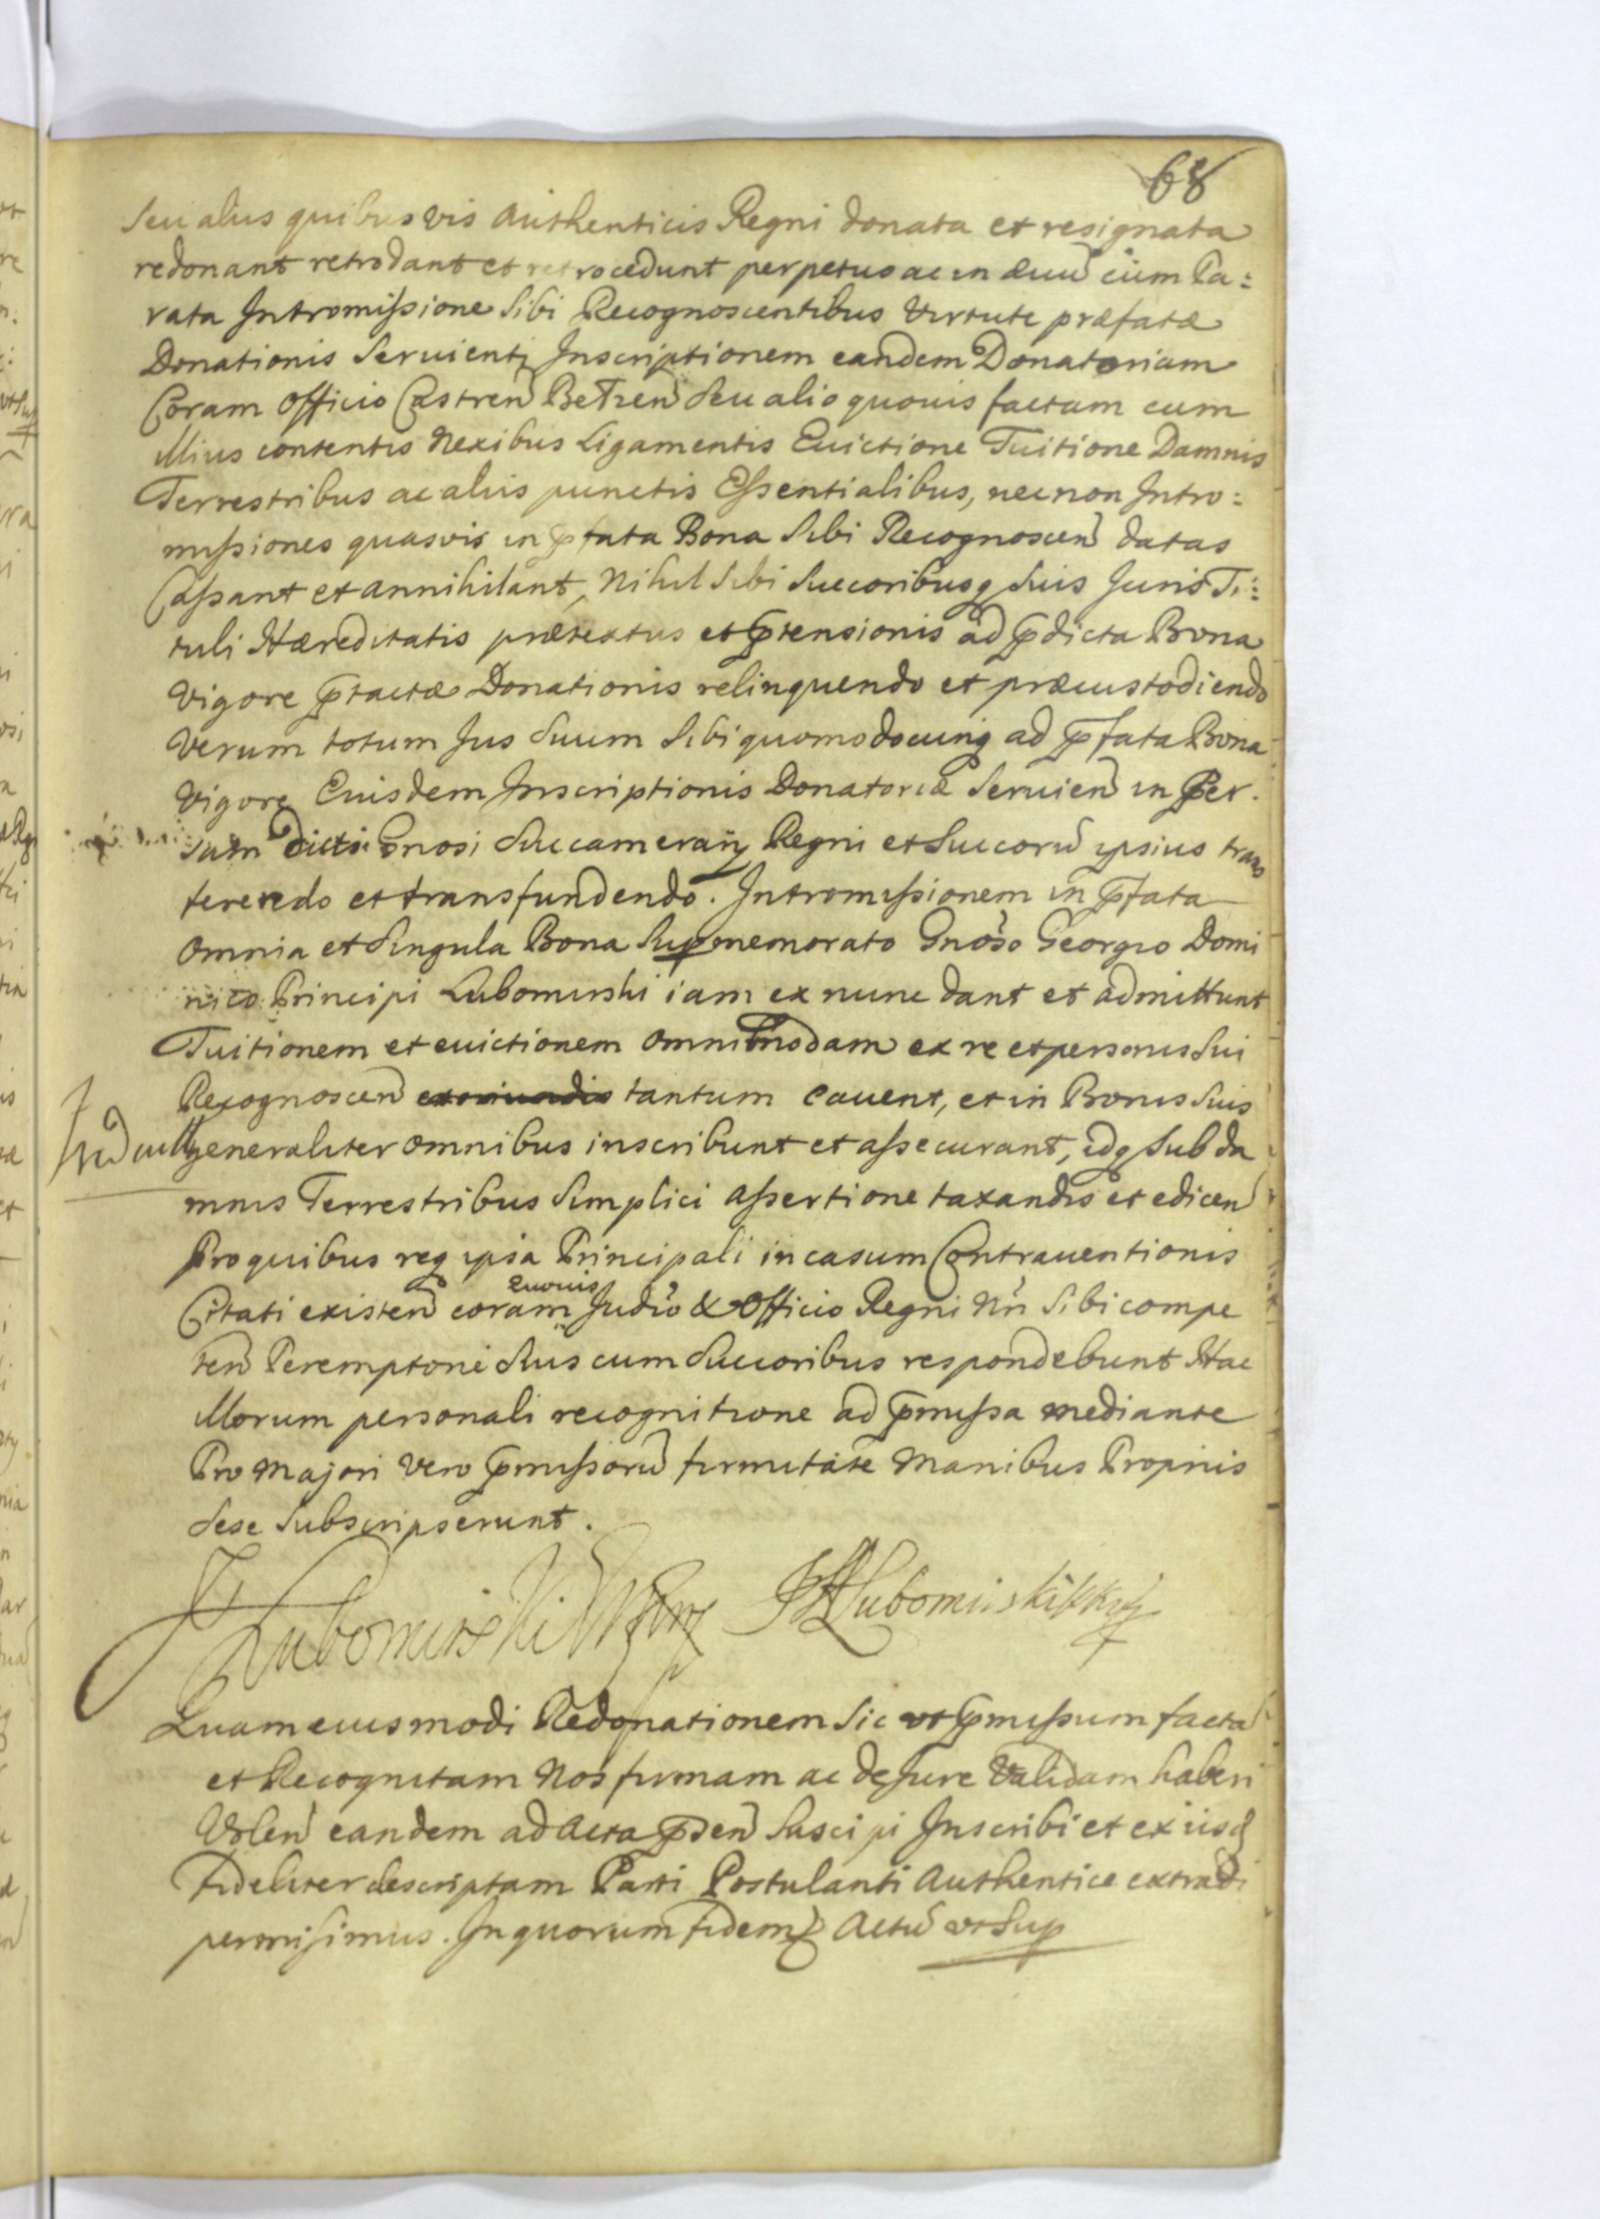 68
seu alius quibus vis authenticis Regni donata et resignata
redonant retrodant et retrocedunt perpetuo ac in æuũ cùm Pa:
rata Intromissione sibi Recognoscentibus Virtute præfatæ
Donationis seruienti Inscriptionem eandem Donatoriam
Coram Officio Castreñ Betzeñ seu alio quouis factam cum
Illius contentis Nexibus Ligamentis Euictione Tuitione Damnis
Terrestribus ac aliis punctis Essentialibus, necnon Intro:
missiones quasvis in p̄fata Bona sibi Recognosceñ datas
Cassant et annihilant, Nihil sibi succoribusq suis Juris Ti:
tuli Hæreditatis prætextus et p̄tensionis ad p̄dicta Bona
Vigore p̄tactæ Donationis relinquendo et præcustodiendo
Verum totum Jus suum sibi quomodocunq ad p̄fata Bona
Vigore Eiusdem Inscriptionis Donatoriæ seruieñ in Per.
sam dicti Gnosi succamerarij Regni et succorũ ipsius trans
ferendo et transfundendo. Intromissionem in p̄fata
omnia et singula Bona supmemorato Gnoso Georgio Domi
nico Principi Lubomirski iam ex nunc dant et admittunt
Tuitionem et euictionem omnimodam ex re et personis sui
Recognosceñ tantum cauent, et in Bonis suis
generaliter omnibus inscribunt et assecurant, idq sub da
mnis Terrestribus simplici assertione taxandis et ediceñ
Pro quibus req ipsa Principali in casum Contrauentionis
Citati existeñ coram quouis Judio & Officio Regni Nñ sibi compe
teñ Peremptorie suis cum succoribus respondebunt Hac
Illorum personali recognitione ad p̄missa mediante
Pro majori vero p̄missorũ firmitate Manibus Propriis
sese subscripserunt.
Lubomirski Lubomirski
Quam eiusmodi Redonationem sic ut p̄missum factã
et Recognitam Nos firmam ac de jure Validam haberi
Voleñ eandem ad Acta p̄señ suscipi Inscribi et ex iisd
fideliter descriptam Parti Postulanti Authentice extradi
permisimus. In quorum fidem Actũ ut sup